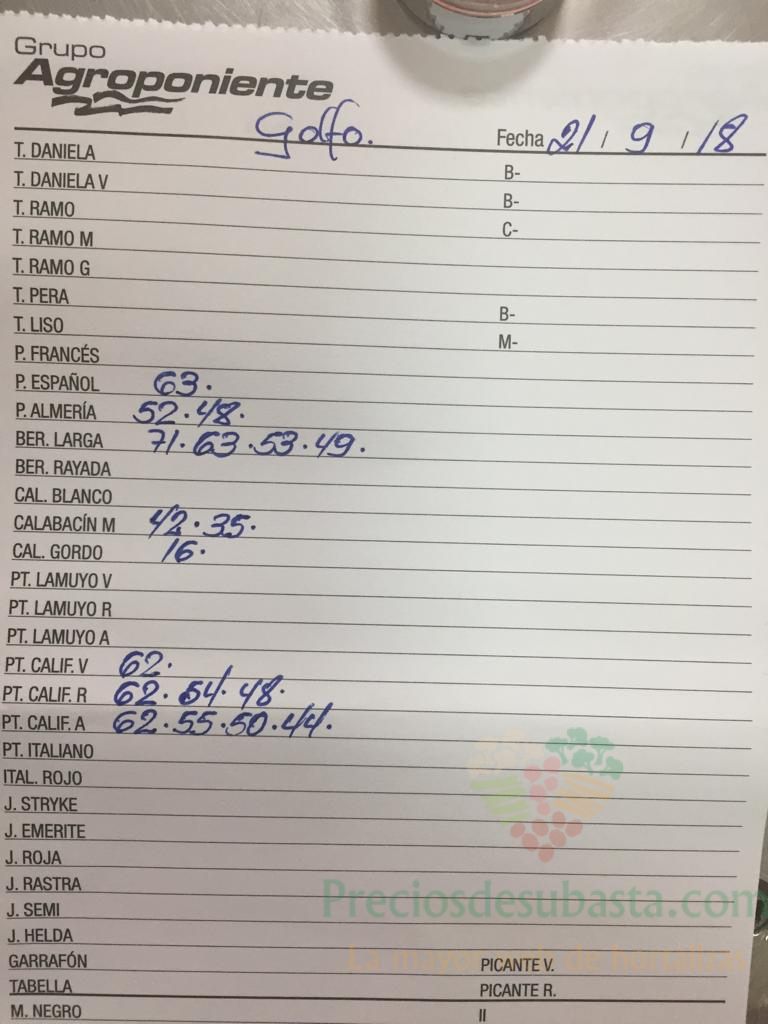 Grupo
Agroponiente
Golfo. Fecha 21 / 9 / 18
T. DANIELA B-
T. DANIELA V B-
T. RAMO C-
T. RAMO M
T. RAMO G
T. PERA B-
T. LISO M-
P. FRANCÉS
P. ESPAÑOL 63.
P. ALMERÍA 52.48.
BER. LARGA 71.63.53.49.
BER. RAYADA
CAL. BLANCO
CALABACÍN M 42.35.
CAL. GORDO 16.
PT. LAMUYO V
PT. LAMUYO R
PT. LAMUYO A
PT. CALIF. V 62.
PT. CALIF. R 62.54.48.
PT. CALIF. A 62.55.50.44.
PT. ITALIANO
ITAL. ROJO
J. STRYKE
J. EMERITE
J. ROJA
J. RASTRA
Preciosdesubasta.com
J. SEMI
J. HELDA
La mayor web de hortalizas
GARRAFÓN PICANTE V.
TABELLA PICANTE R.
M. NEGRO II